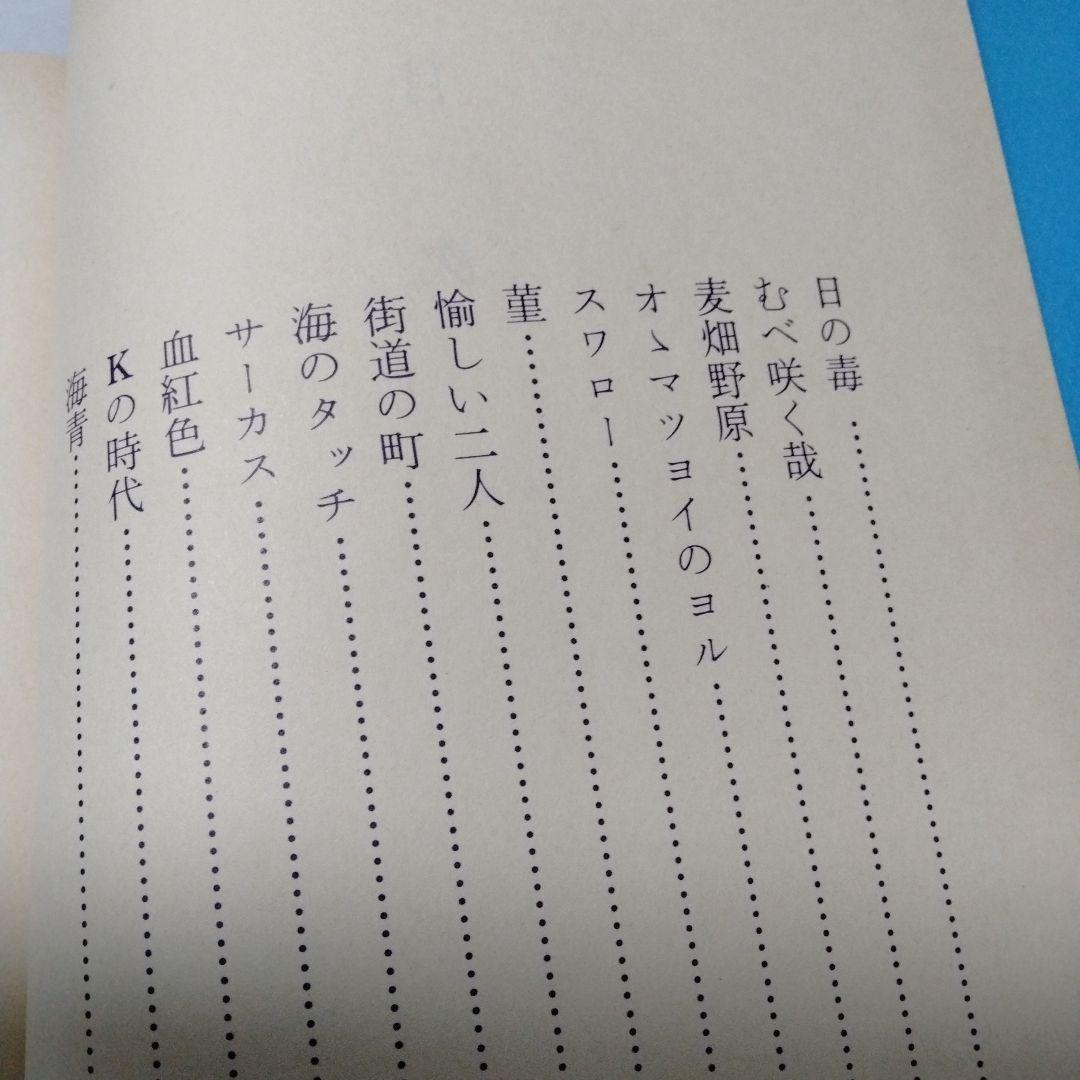 日の毒
むべ咲く哉
麦畑野原
オゝマツヨイのヨル
スワロー
菫
愉しい二人
街道の町
海のタッチ
サーカス
血紅色
Kの時代
海青